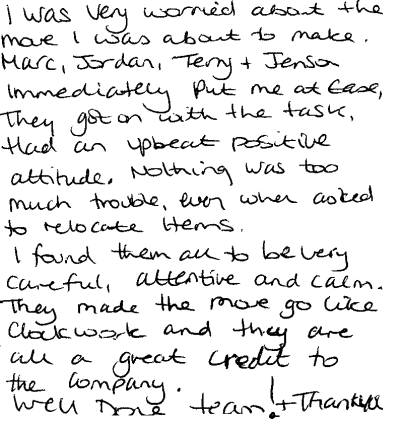 I was very worried about the
move I was about to make.
Marc, Jordan, Terry + Jenson
Immediately put me at Ease,
They got on with the task,
Had an upbeat positive
attitude. Nothing was too
much trouble, even when asked
to relocate Items.
I found them all to be very
careful, attentive and calm.
They made the move go like
Clockwork and they are
all a great credit to
the company.
Well Done team! + Thankyou